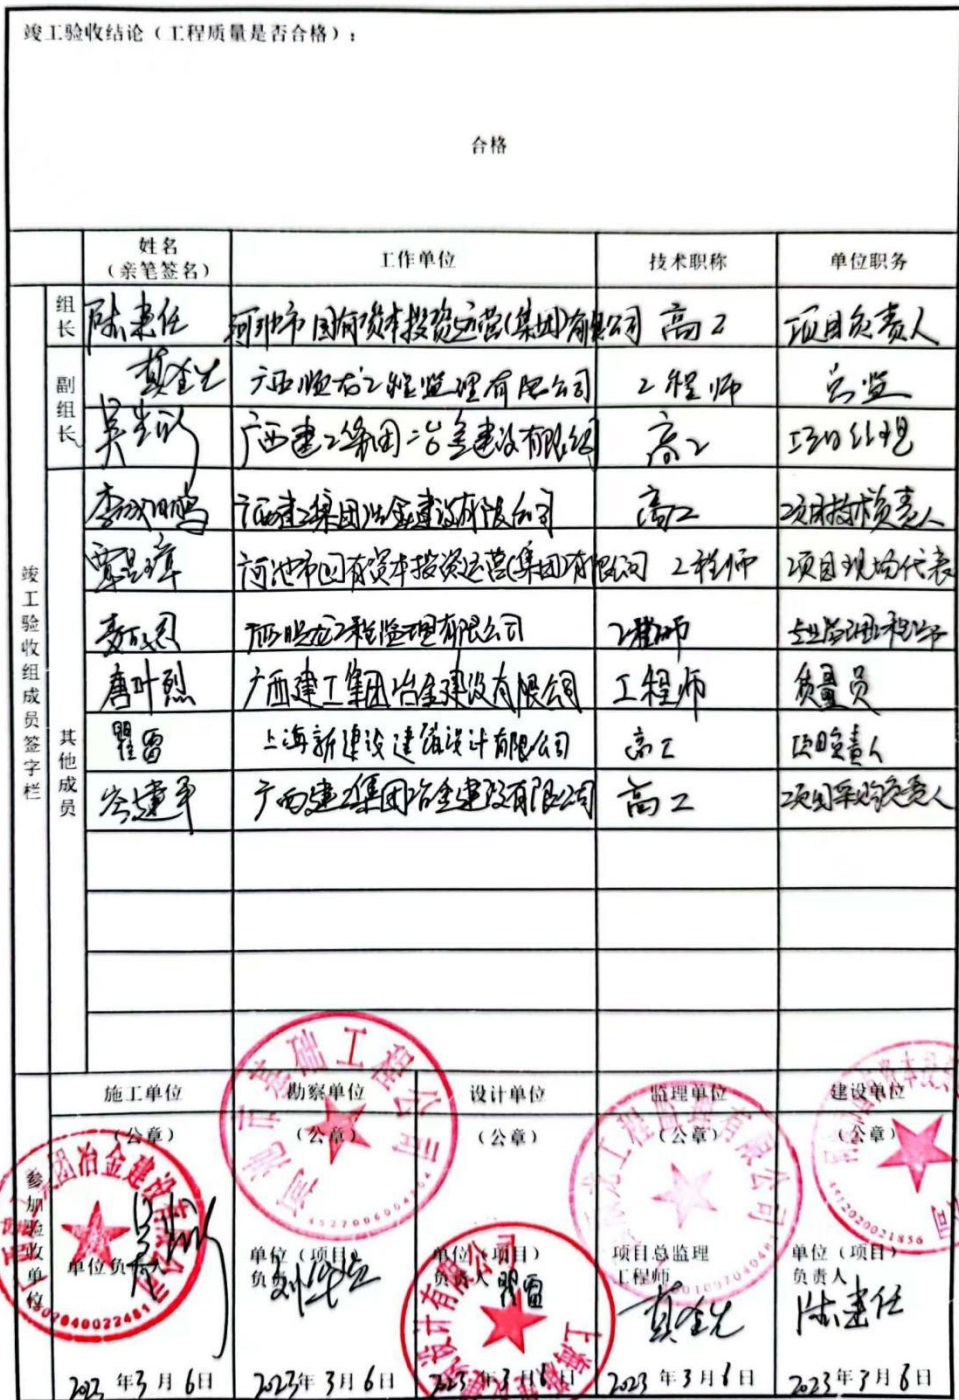 竣工验收结论（工程质量是否合格）：
合格
姓名（亲笔签名） 工作单位 技术职称 单位职务
竣工验收组成员签字栏
组长 陈建任 河池市国有资本投资运营(集团)有限公司 高工 项目负责人
副组长 工程监理有限公司 工程师 总监
吴 广西建工集团冶金建设有限公司 高工 项目经理
其他成员
李 鸣 广西建工集团冶金建设有限公司 高工 项目技术负责人
覃 河池市国有资本投资运营(集团)有限公司 工程师 项目现场代表
工程监理有限公司 工程师 专业监理工程师
唐叶烈 广西建工集团冶金建设有限公司 工程师 质量员
瞿雷 上海新建设建筑设计有限公司 高工 项目负责人
岑建军 广西建工集团冶金建设有限公司 高工 项目采购负责人
参加验收单位
施工单位 勘察单位 设计单位 监理单位 建设单位
（公章） （公章） （公章） （公章） （公章）
集团冶金建设有限公司
河池市基础工程公司
设计有限公司
工程监理有限公司
4512020021856
单位负责人
单位（项目）负责人
单位（项目）负责人 瞿雷
项目总监理工程师
单位（项目）负责人 陈建任
2023年3月6日 2023年3月6日 2023年3月6日 2023年3月6日 2023年3月6日